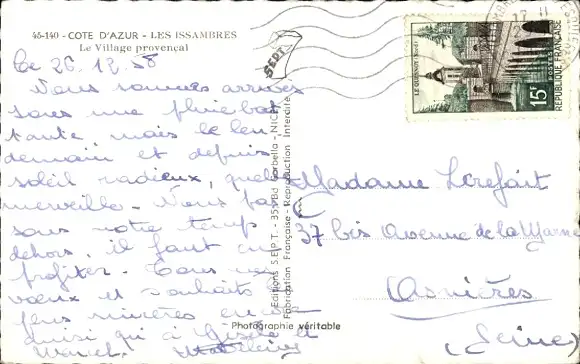 45-140 - COTE D'AZUR - LES ISSAMBRES
Le Village provençal
SEPT
Le 26.12.58
Nous sommes arrivés
sous une pluie bat
tante mais le len
demain et depuis
soleil radieux, quelle
merveille. Nous pas
sons notre temps
dehors, il faut en
profiter. Tous nos
vœux et souhaits les
plus sincères
ainsi qu'à Gisèle et
Marcel
Editions S.E.P.T. - 35, Bd Barbella - NICE
Fabrication Française - Reproduction Interdite
Photographie véritable
LE QUESNOY (Nord)
15F
POSTES
REPUBLIQUE FRANÇAISE
Madame
37 bis Avenue de la Marne
Asnières
(Seine)